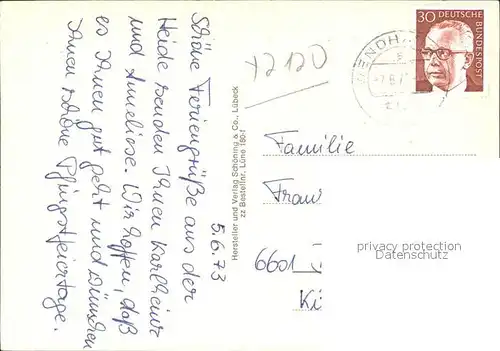 Schöne Feriengrüße aus der
Heide senden Ihnen Karlheinz
und Anneliese. Wir hoffen, daß
es Ihnen gut geht und wünschen
Ihnen schöne Pfingstfeiertage.
5.6.73
Hersteller und Verlag Schöning & Co., Lübeck
zz Bestellnr. Lüne
30 DEUTSCHE
BUNDESPOST
Familie
Franz
privacy protection
Datenschutz
6601